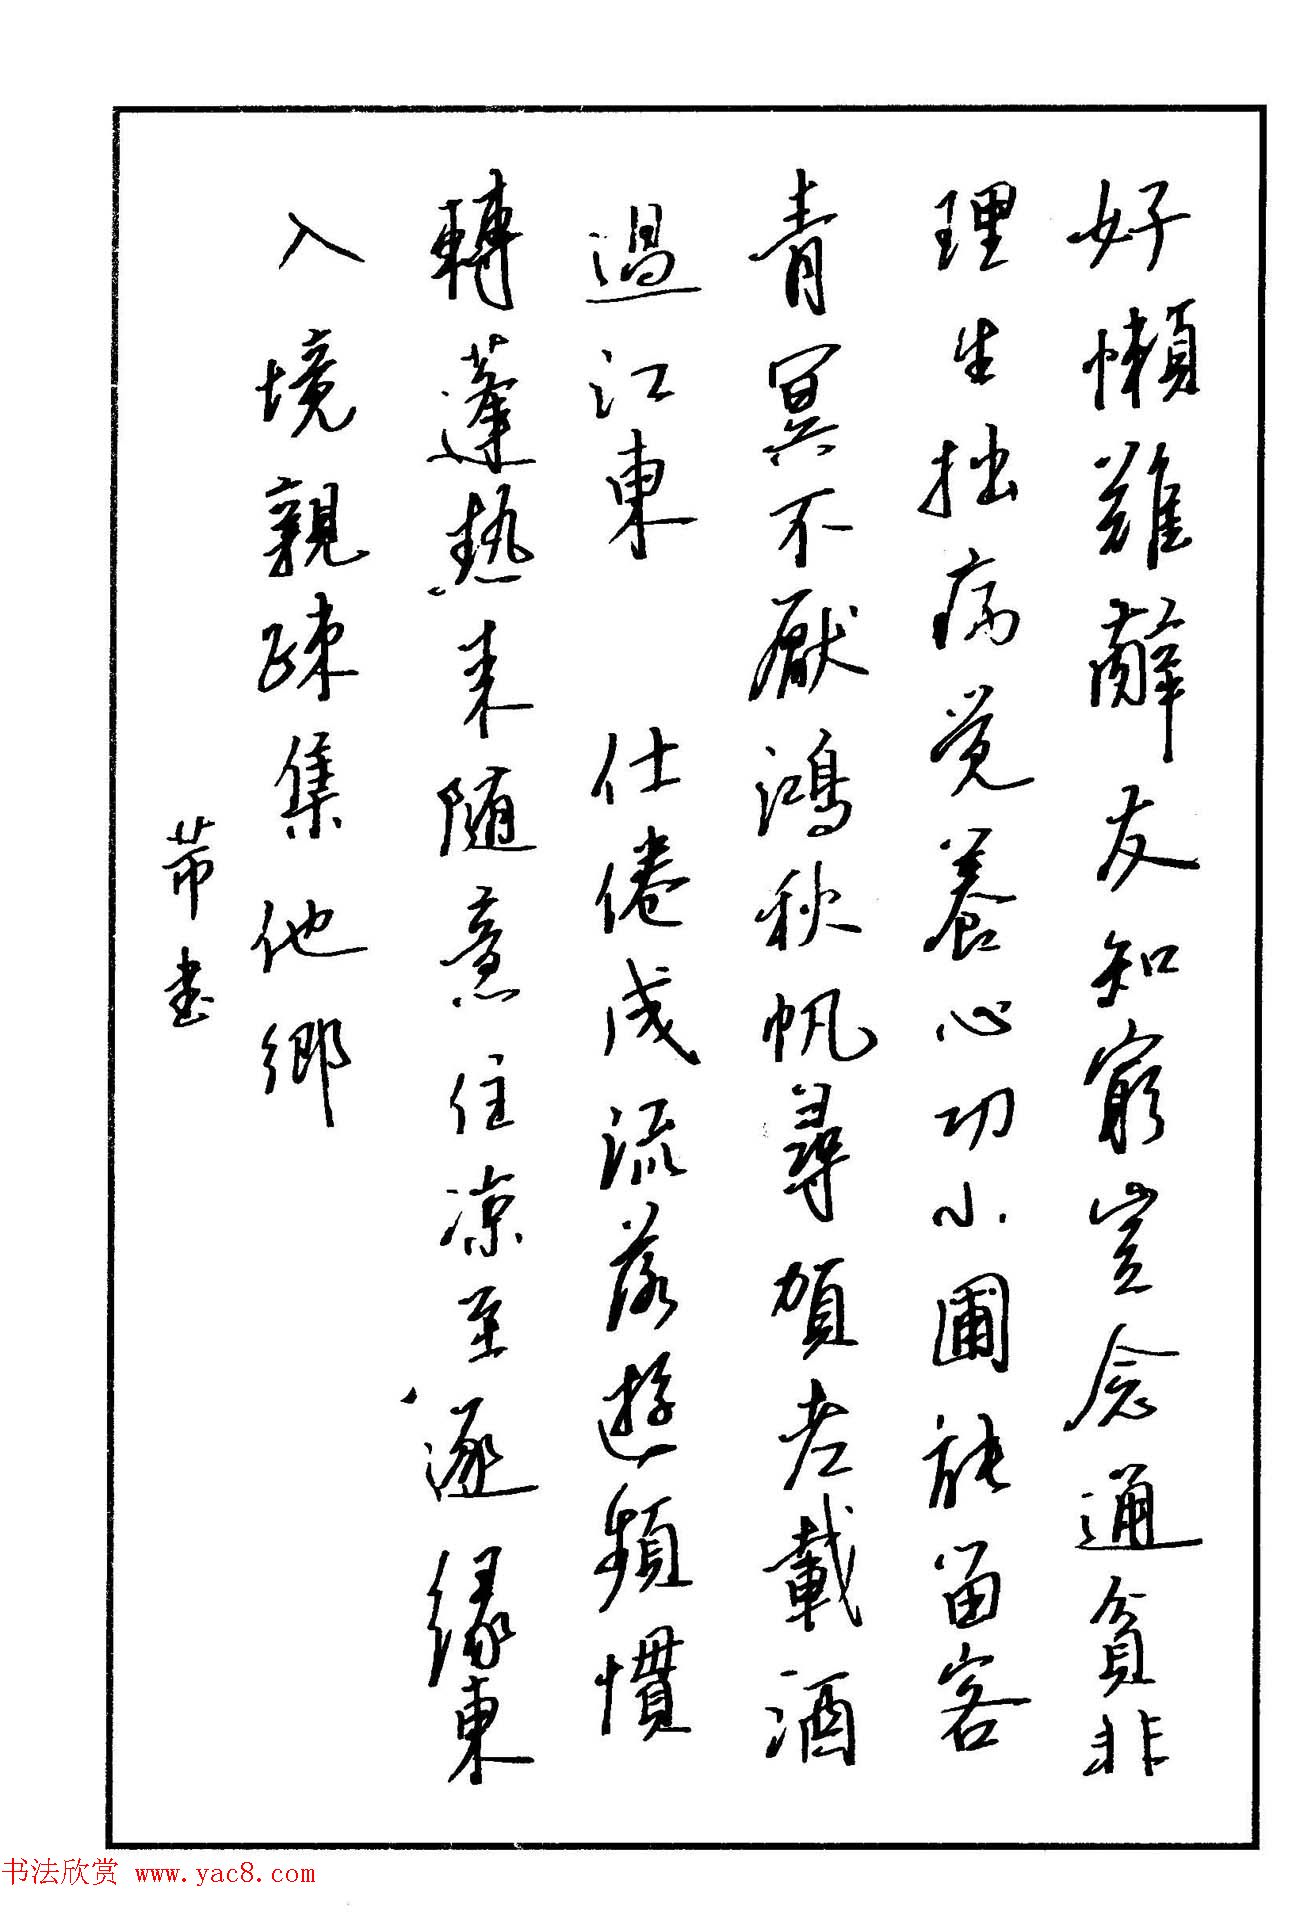 好懶難辭友知窮豈念通貧非
理生拙病覺養心功小圃能留客
青冥不厭鴻秋帆尋賀老載酒
過江東 仕倦成流落遊頻慣
轉蓬熱来隨意住凉至逐緣東
入境親疎集他鄉
芾書
书法欣赏 www.yac8.com